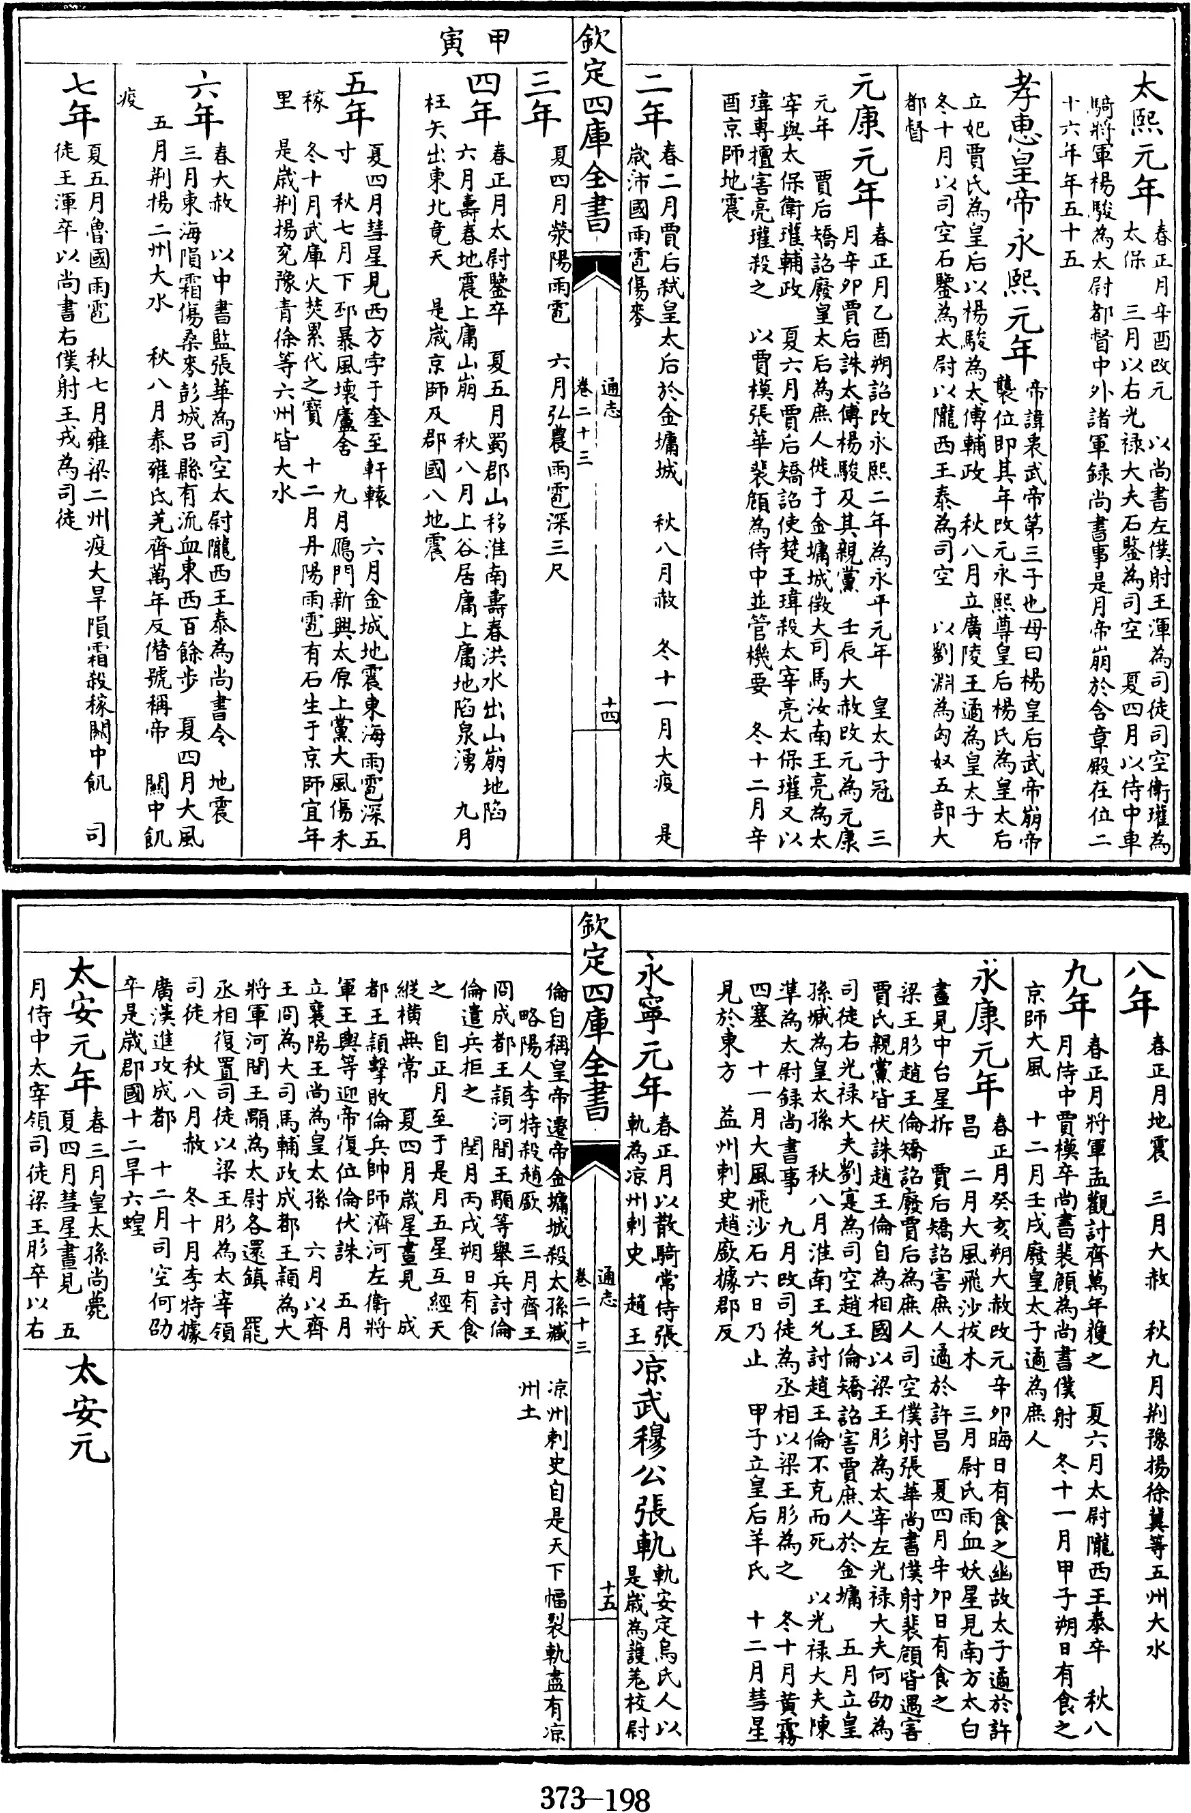 太熙元年
春正月辛酉改元 以尚書左僕射王渾為司徒司空衛瓘為
太保 三月以右光祿大夫石鑒為司空 夏四月以侍中車
騎將軍楊駿為太尉都督中外諸軍録尚書事是月帝崩於含章殿在位二
十六年年五十五
孝惠皇帝永熙元年
帝諱衷武帝第三子也母曰楊皇后武帝崩帝
襲位即其年改元永熙尊皇后楊氏為皇太后
立妃賈氏為皇后以楊駿為太傅輔政 秋八月立廣陵王遹為皇太子
冬十月以司空石鑒為太尉以隴西王泰為司空 以劉淵為匈奴五部大
都督
元康元年
春正月乙酉朔詔改永熙二年為永平元年 皇太子冠 三
月辛卯賈后誅太傅楊駿及其親黨 壬辰大赦改元為元康
元年 賈后矯詔廢皇太后為庶人徙于金墉城徵大司馬汝南王亮為太
宰與太保衛瓘輔政 夏六月賈后矯詔使楚王瑋殺太宰亮太保瓘又以
瑋專擅害亮瓘殺之 以賈模張華裴頠為侍中並管機要 冬十二月辛
酉京師地震
二年
春二月賈后弑皇太后於金墉城 秋八月赦 冬十一月大疫 是
歲沛國雨雹傷麥
欽定四庫全書
通志
卷二十三
十四
三年
夏四月滎陽雨雹 六月弘農雨雹深三尺
甲寅
四年
春正月太尉鑒卒 夏五月蜀郡山移淮南壽春洪水出山崩地陷
六月壽春地震上庸山崩 秋八月上谷居庸上庸地陷泉湧 九月
枉矢出東北竟天 是歲京師及郡國八地震
五年
夏四月彗星見西方孛于奎至軒轅 六月金城地震東海雨雹深五
寸 秋七月下邳暴風壞廬舍 九月鴈門新興太原上黨大風傷禾
稼 冬十月武庫火焚累代之寶 十二月丹陽雨雹有石生于京師宜年
里 是歲荆揚兗豫青徐等六州皆大水
六年
春大赦 以中書監張華為司空太尉隴西王泰為尚書令 地震
三月東海隕霜傷桑麥彭城吕縣有流血東西百餘步 夏四月大風
五月荆揚二州大水 秋八月秦雍氐羌齊萬年反僭號稱帝 關中飢
疫
七年
夏五月魯國雨雹 秋七月雍梁二州疫大旱隕霜殺稼關中飢 司
徒王渾卒以尚書右僕射王戎為司徒
八年
春正月地震 三月大赦 秋九月荆豫揚徐冀等五州大水
九年
春正月將軍孟觀討齊萬年獲之 夏六月太尉隴西王泰卒 秋八
月侍中賈模卒尚書裴頠為尚書僕射 冬十一月甲子朔日有食之
京師大風 十二月壬戌廢皇太子遹為庶人
永康元年
春正月癸亥朔大赦改元辛卯晦日有食之幽故太子遹於許
昌 二月大風飛沙拔木 三月尉氏雨血妖星見南方太白
晝見中台星拆 賈后矯詔害庶人遹於許昌 夏四月辛卯日有食之
梁王肜趙王倫矯詔廢賈后為庶人司空僕射張華尚書僕射裴頠皆遇害
賈氏親黨皆伏誅趙王倫自為相國以梁王肜為太宰左光祿大夫何劭為
司徒右光祿大夫劉寔為司空趙王倫矯詔害賈庶人於金墉 五月立皇
孫臧為皇太孫 秋八月淮南王允討趙王倫不克而死 以光祿大夫陳
準為太尉録尚書事 九月改司徒為丞相以梁王肜為之 冬十月黄霧
四塞 十一月大風飛沙石六日乃止 甲子立皇后羊氏 十二月彗星
見於東方 益州刺史趙廞據郡反
永寧元年
春正月以散騎常侍張
軌為凉州刺史 趙王
凉武穆公張軌
軌安定烏氏人以
是歲為護羌校尉
欽定四庫全書
通志
卷二十三
十五
倫自稱皇帝遷帝金墉城殺太孫臧
略陽人李特殺趙廞 三月齊王
冏成都王頴河間王顒等舉兵討倫
倫遣兵拒之 閏月丙戌朔日有食
之 自正月至于是月五星互經天
縱横無常 夏四月歲星晝見 成
都王頴擊敗倫兵帥師濟河左衛將
軍王輿等迎帝復位倫伏誅 五月
立襄陽王尚為皇太孫 六月以齊
王冏為大司馬輔政成都王頴為大
將軍河間王顒為太尉各還鎮 罷
丞相復置司徒以梁王肜為太宰領
司徒 秋八月赦 冬十月李特據
廣漢進攻成都 十二月司空何劭
卒是歲郡國十二旱六蝗
凉州刺史自是天下幅裂軌盡有凉
州土
太安元年
春三月皇太孫尚薨
夏四月彗星晝見 五
月侍中太宰領司徒梁王肜卒以右
太安元
373—198